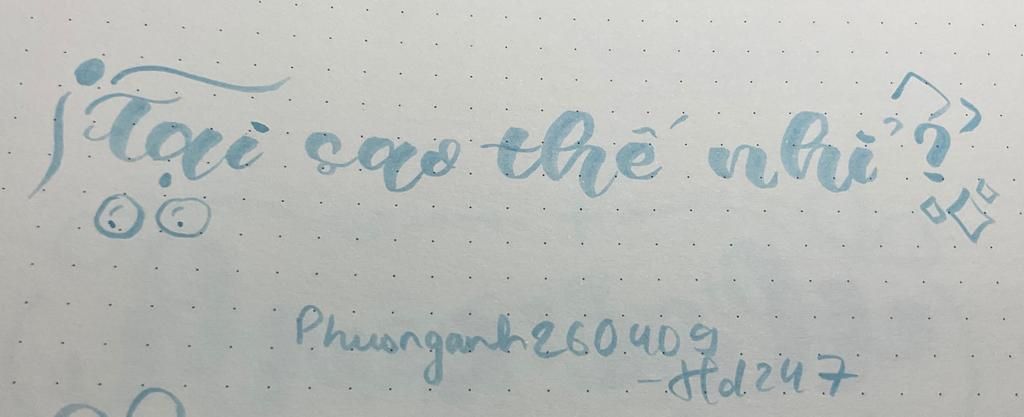 Tại sao thế nhỉ?
Phuonganh260409
-Hd247